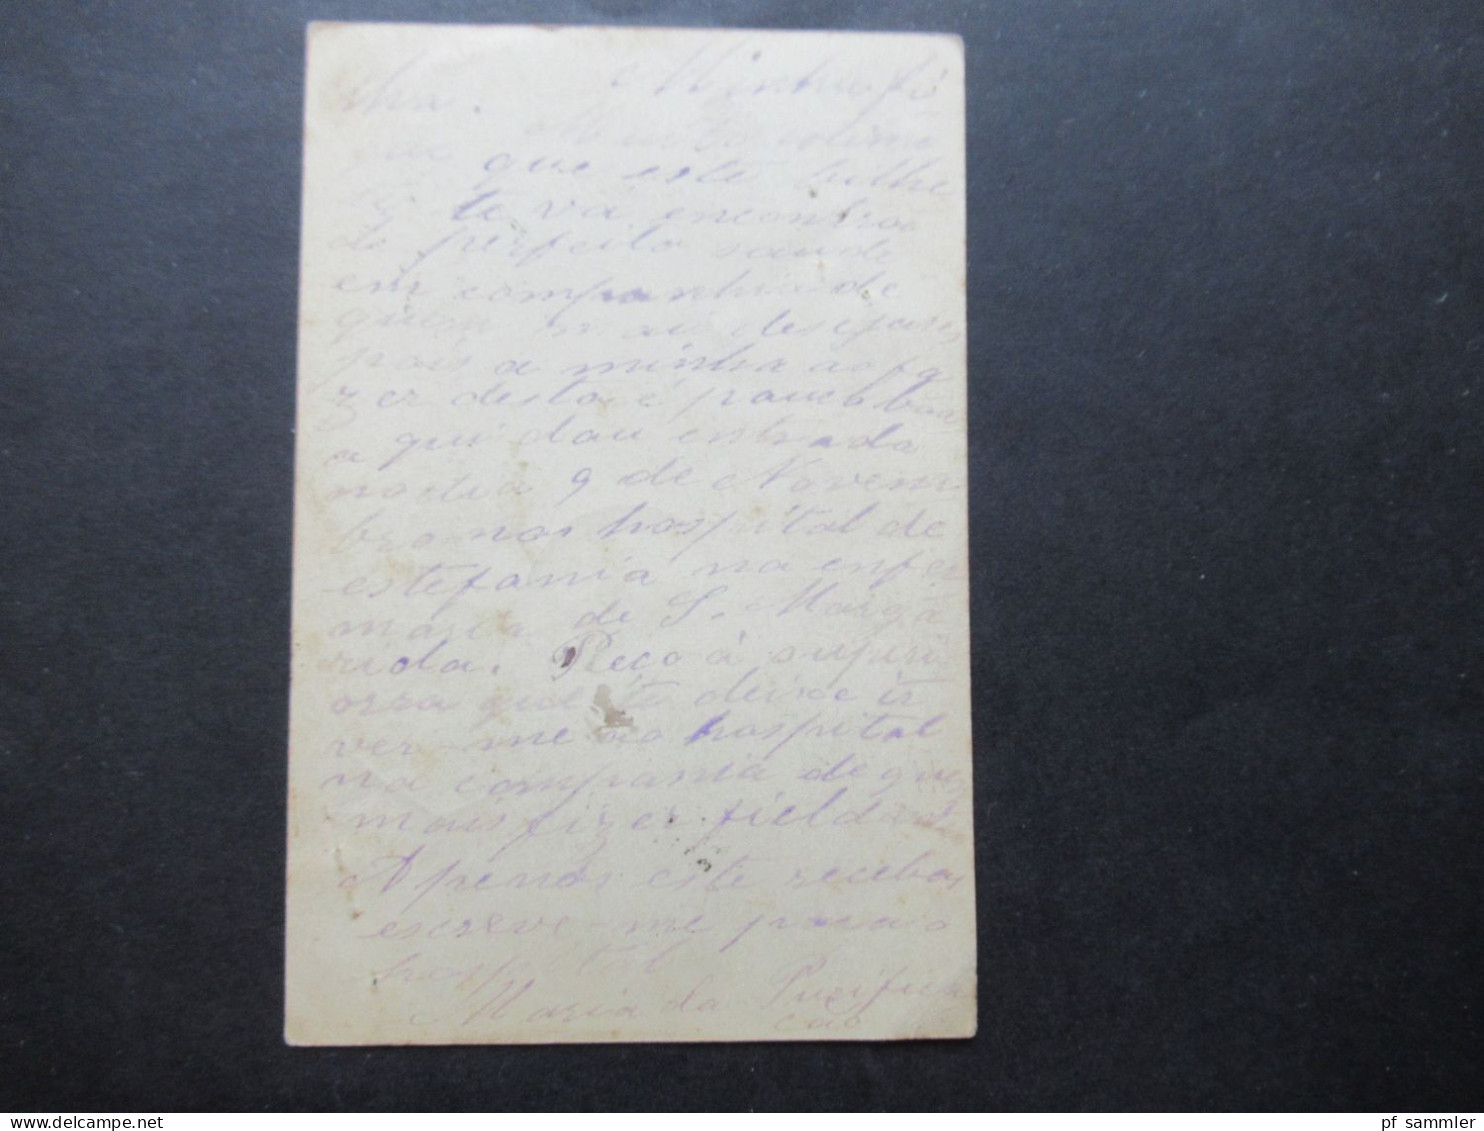 Minha fi
lha.
Muito estimo
que este bilhe
te vá encontrar
de perfeita saude
em companhia de
quem mais desejares
pois a minha ao fa
zer desta é pouco boa
a qui dou entrada
no dia 9 de Novem
bro no hospital de
estefania na enfer
maria de S. Marga
rida. Peço à superi
ora que te deixe ir
ver-me ao hospital
na compania de quem
mais fizer
Apenas este recebas
escreve-me para o
hospital
Maria da Purifica
cão
pf sammler